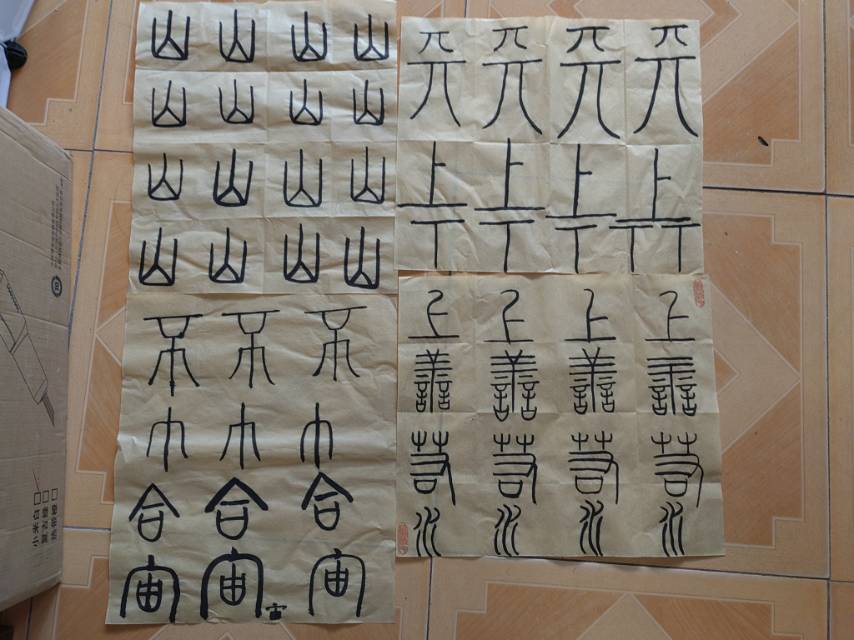 山 山 山 山
山 山 山 山
山 山 山 山
山 山 山 山
上 上 上 上
下 下 下 下
不 不 不
巾 巾 巾
合 合 合
宙 宙 宙 宙
上 上 上 上
善 善 善 善
若 若 若 若
水 水 水 水
小米白